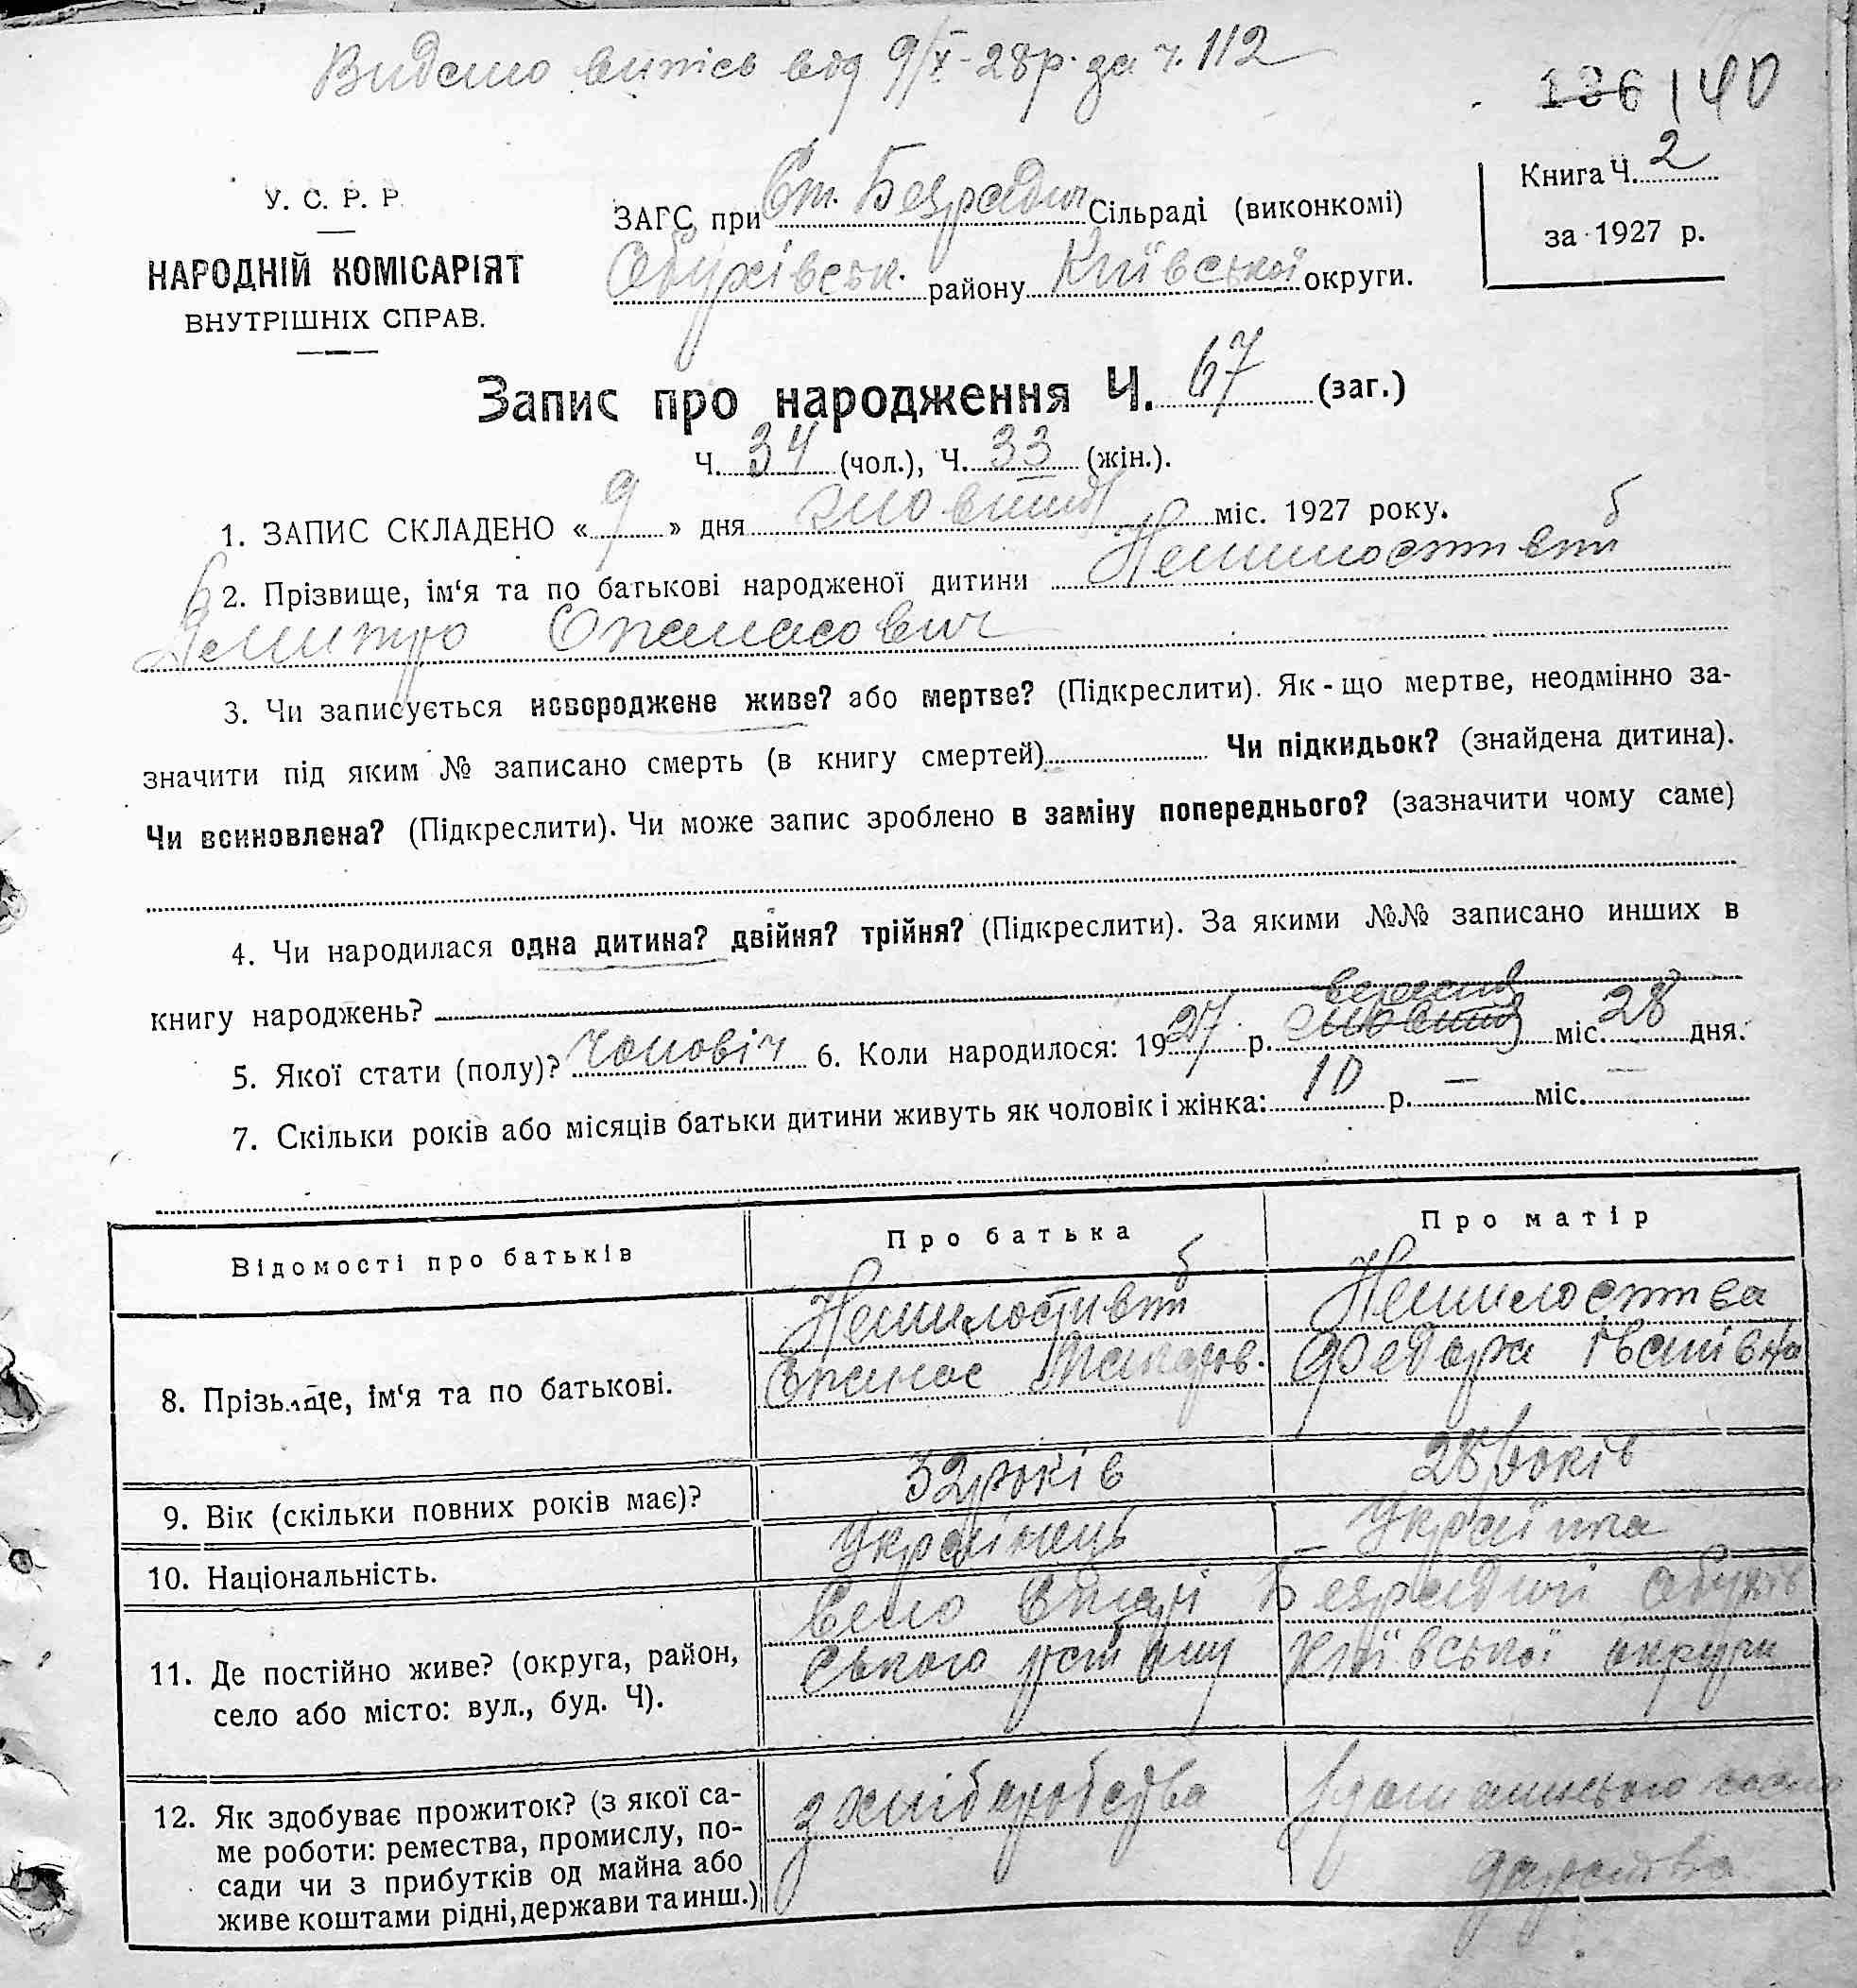 Видано витяг від 9/X - 28 р. за ч. 112
136 140
У. С. Р. Р.
НАРОДНІЙ КОМІСАРІЯТ
ВНУТРІШНІХ СПРАВ.
ЗАГС при Ст. Безрадич Сільраді (виконкомі)
Обухівськ. району Київської округи.
Книга Ч. 2
за 1927 р.
Запис про народження Ч. 67 (заг.)
Ч. 34 (чол.), Ч. 33 (жін.).
1. ЗАПИС СКЛАДЕНО « 9 » дня жовтня міс. 1927 року.
2. Прізвище, ім‘я та по батькові народженої дитини
Дмитро Опанасович
3. Чи записується новороджене живе? або мертве? (Підкреслити). Як - що мертве, неодмінно за-
значити під яким № записано смерть (в книгу смертей) Чи підкидьок? (знайдена дитина).
Чи всиновлена? (Підкреслити). Чи може запис зроблено в заміну попереднього? (зазначити чому саме)
4. Чи народилася одна дитина? двійня? трійня? (Підкреслити). За якими №№ записано инших в
книгу народжень?
5. Якої стати (полу)? чоловіч 6. Коли народилося: 1927 р. жовтня вересня міс. 28 дня.
7. Скільки років або місяців батьки дитини живуть як чоловік і жінка: 10 р. — міс. —
Відомості про батьків
Про батька
Про матір
8. Прізвище, ім‘я та по батькові.
Опанас Макаров.
Немилоства
Федора Іванівна
9. Вік (скільки повних років має)?
32 років
28 років
10. Національність.
Українець
Українка
11. Де постійно живе? (округа, район,
село або місто: вул., буд. Ч).
Село Старі Безрадичі Обухів
ського району Київської округи
12. Як здобуває прожиток? (з якої са-
ме роботи: ремества, промислу, по-
сади чи з прибутків од майна або
живе коштами рідні, держави та инш.)
з хліборобства
з домашнього госпо
дарства